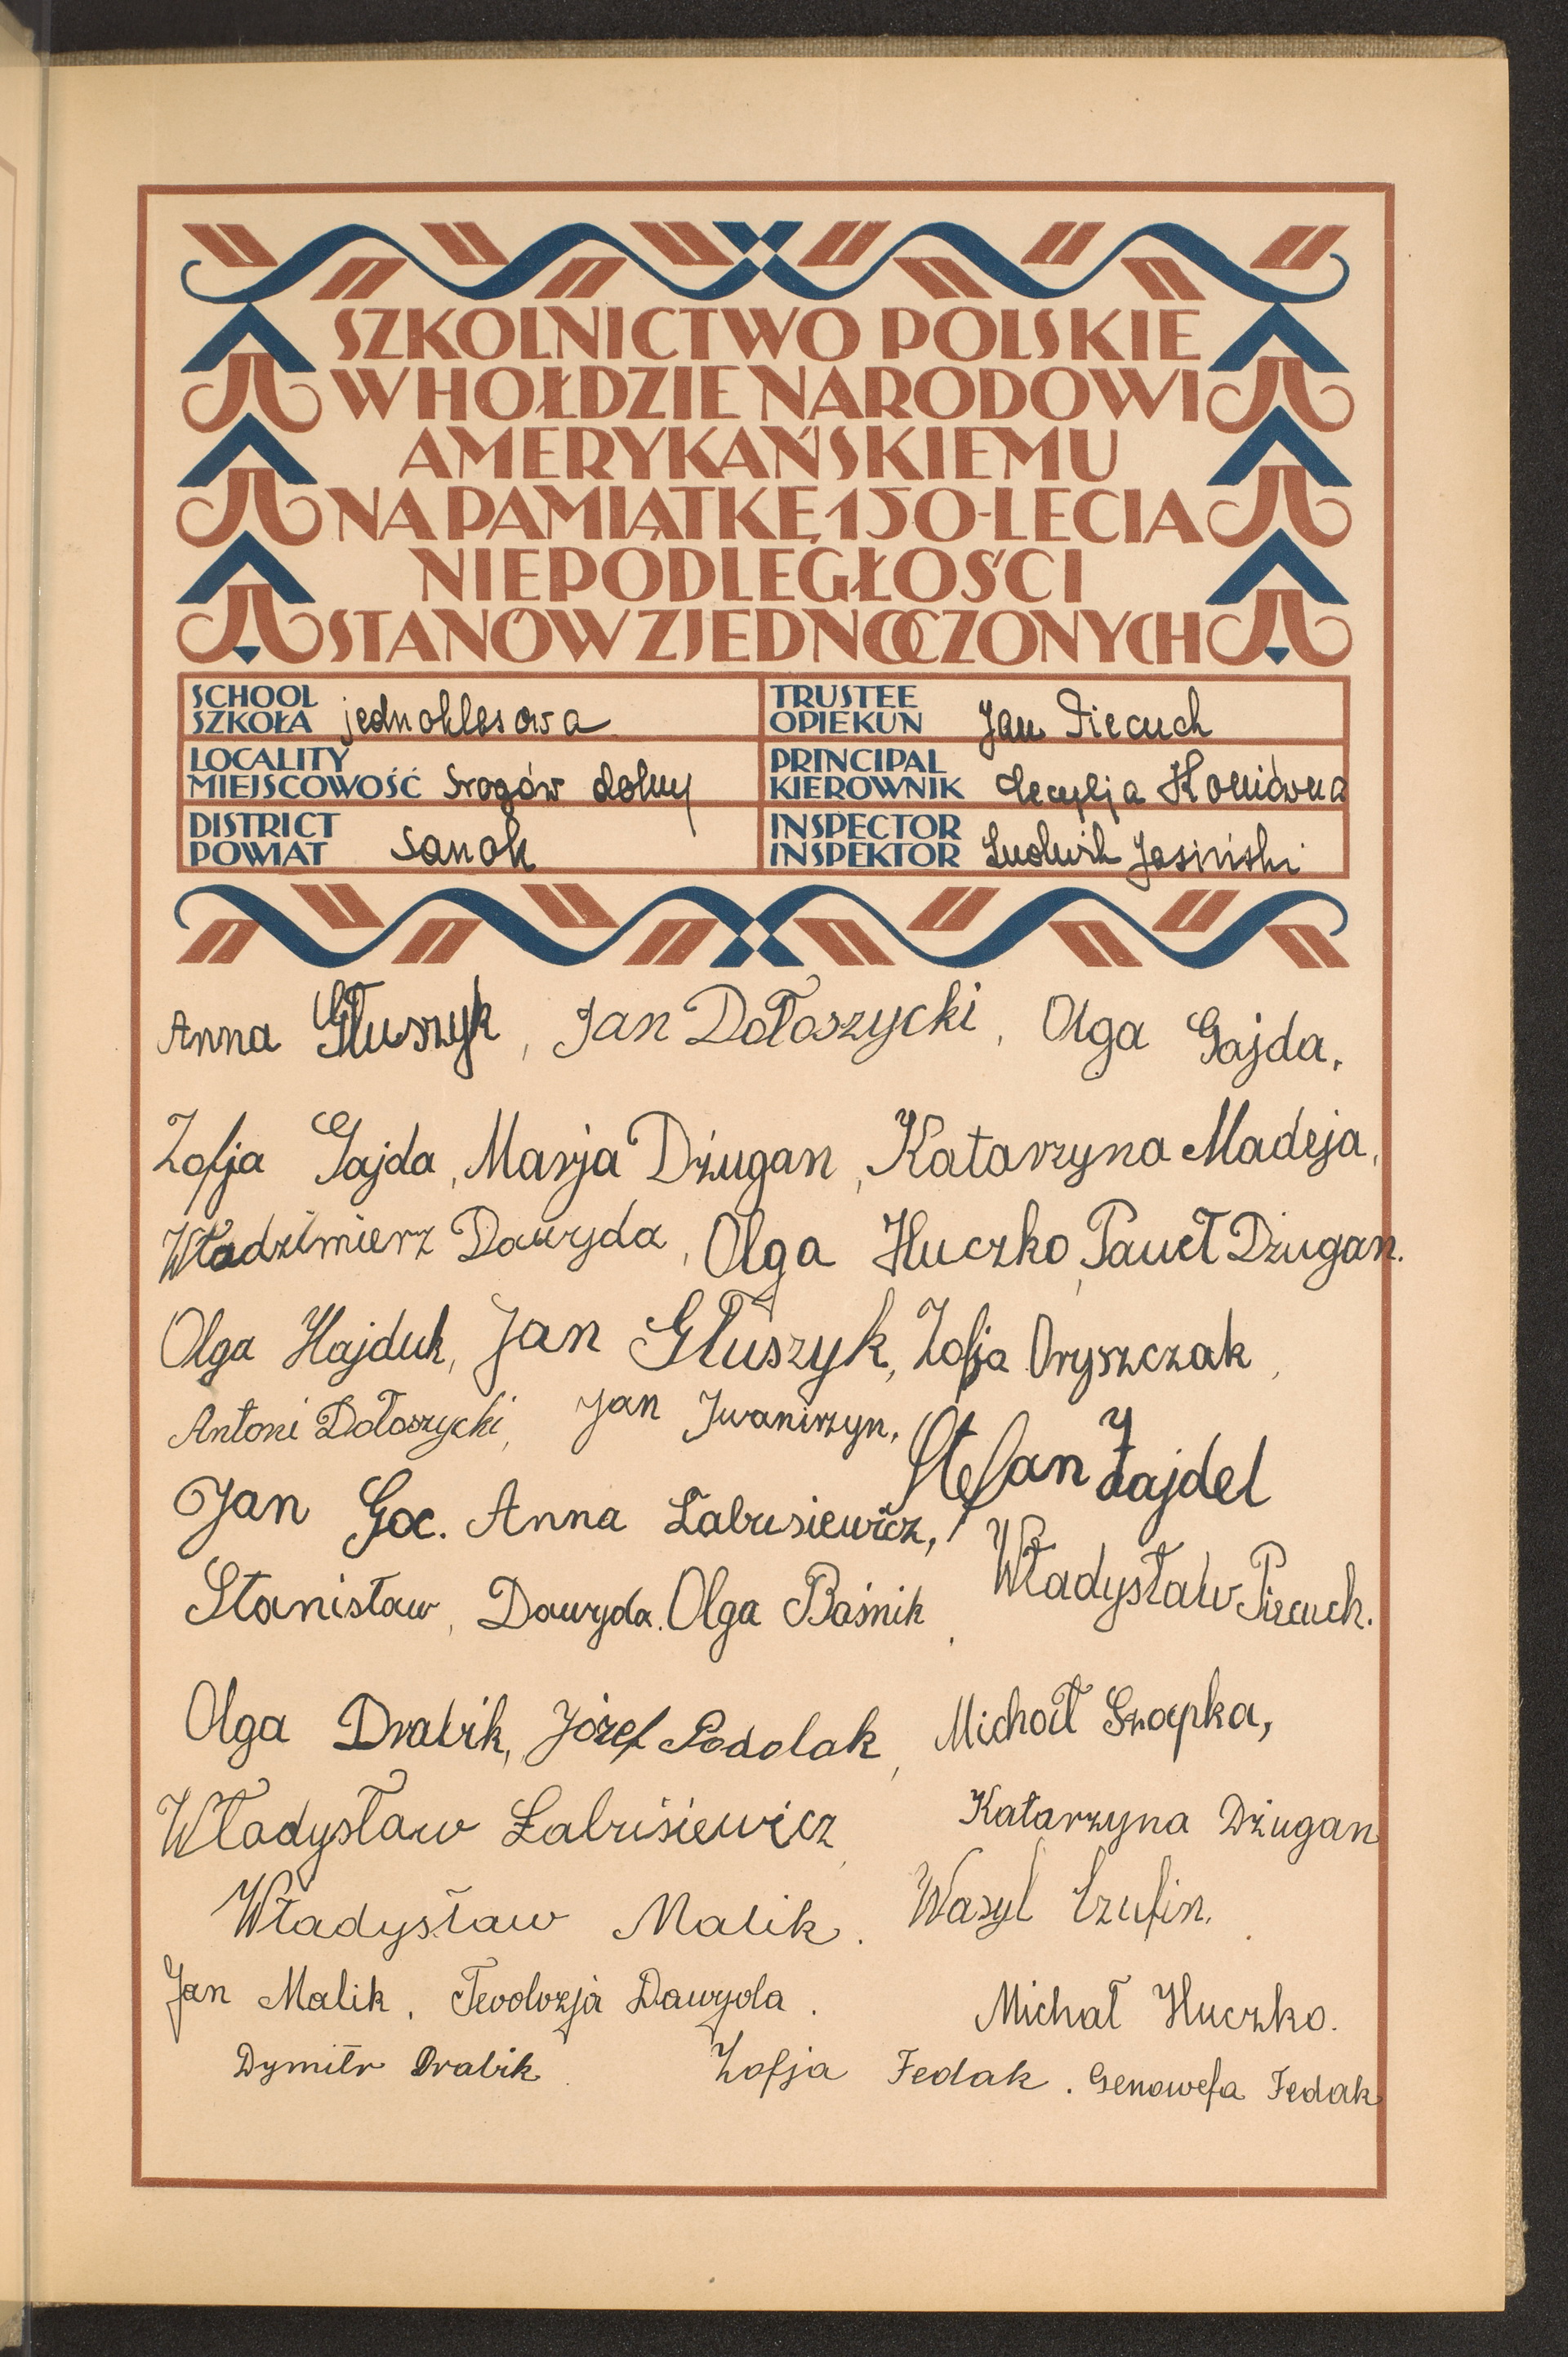 SZKOLNICTWO POLSKIE
W HOŁDZIE NARODOWI
AMERYKAŃSKIEMU
NA PAMIĄTKĘ 150-LECIA
NIEPODLEGŁOŚCI
STANÓW ZJEDNOCZONYCH
SCHOOL
SZKOŁA jednoklasowa
TRUSTEE
OPIEKUN Jan Piecuch
LOCALITY
MIEJSCOWOŚĆ Srogów dolny
PRINCIPAL
KIEROWNIK Cecylja Koniówna
DISTRICT
POWIAT Sanok
INSPECTOR
INSPEKTOR Ludwik Jasiński
Anna Głuszyk, Jan Dołoszycki, Olga Gajda,
Zofja Gajda, Marja Dżugan, Katarzyna Madeja,
Władzimierz Dawyda, Olga Huczko, Paweł Dżugan.
Olga Hajduk, Jan Głuszyk, Zofja Oryszczak,
Antoni Dołoszycki, Jan Iwaniszyn, Stefan Zajdel
Jan Goc. Anna Łabusiewicz,
Stanisław, Dawyda. Olga Baśnik, Władysław Piecuch.
Olga Drabik, Józef Podolak, Michał Szapka,
Władysław Łabusiewicz, Katarzyna Dżugan
Władysław Malik. Wasyl Czufin.
Jan Malik. Teodozja Dawyda. Michał Huczko.
Dymitr Drabik. Zofja Fedak. Genowefa Fedak